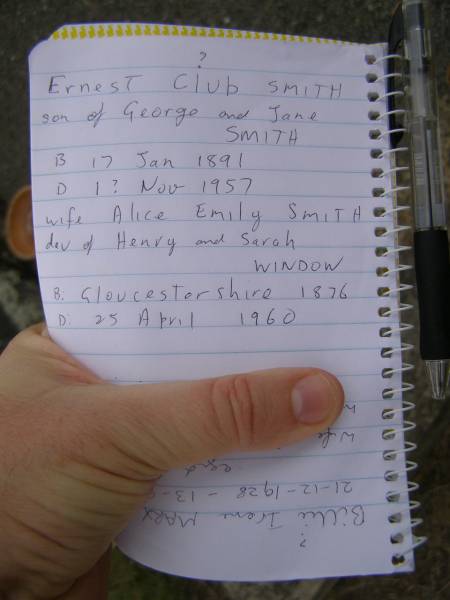 ?
Ernest Club SMITH
son of George and Jane
SMITH
B 17 Jan 1891
D 1? Nov 1957
wife Alice Emily SMITH
dev of Henry and Sarah
WINDOW
B: Gloucestershire 1876
D: 25 April 1960
wife
21-12-1928 - 13-
Billie MARX
?